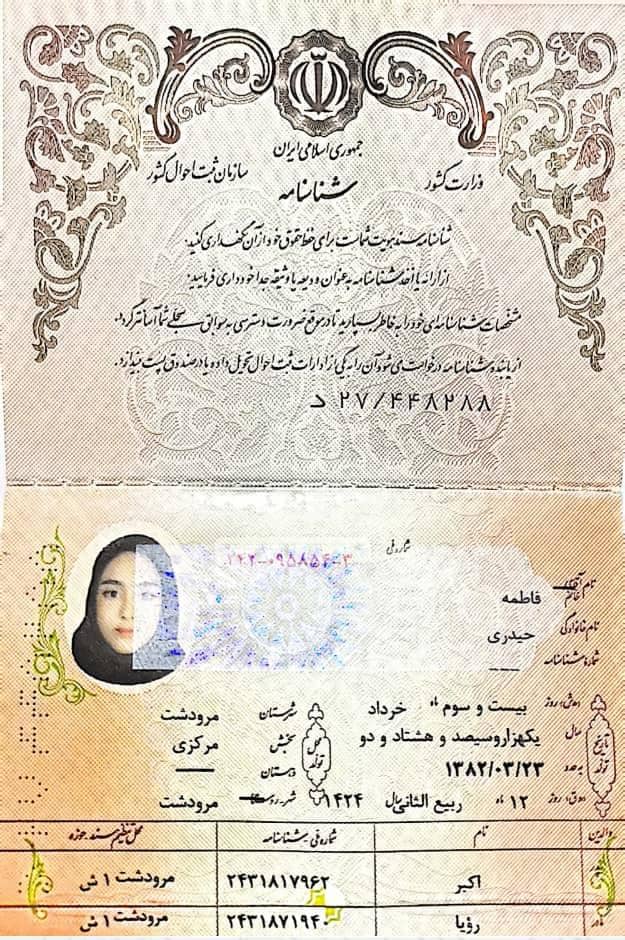 جمهوری اسلامی ایران
وزارت کشور
سازمان ثبت احوال کشور
شناسنامه
شناسنامه سند هویت شماست برای حفظ حقوق خود از آن نگهداری کنید.
از ارائه یا اخذ شناسنامه به عنوان ودیعه یا وثیقه جدا خودداری فرمایید.
مشخصات شناسنامه‌ای خود را به خاطر بسپارید تا در موقع ضرورت دسترسی به سوابق سجلی شما آسانتر گردد.
از یابنده شناسنامه درخواست می شود آن را به یکی از ادارات ثبت احوال تحویل داده یا در صندوق پست بیندازد.
د ۲۷/۴۴۸۲۸۸
شماره ملی ۲۴۲-۰۹۵۸۵۴-۳
نام آقای/خانم فاطمه
نام خانوادگی حیدری
شماره شناسنامه ---
تاریخ تولد
ه‍.ش: روز بیست و سوم ماه خرداد
سال یکهزاروسیصد و هشتاد و دو
به عدد ۱۳۸۲/۰۳/۲۳
ه‍.ق: روز ۱۲ ماه ربیع الثانی سال ۱۴۲۴
محل تولد
شهرستان مرودشت
بخش مرکزی
دهستان —
شهر مرودشت
والدین نام شماره ملی / شناسنامه محل تنظیم سند حوزه
اکبر ۲۴۳۱۸۱۷۹۶۲ مرودشت ۱ ش
مادر رؤیا ۲۴۳۱۸۷۱۹۴۰ مرودشت ۱ ش